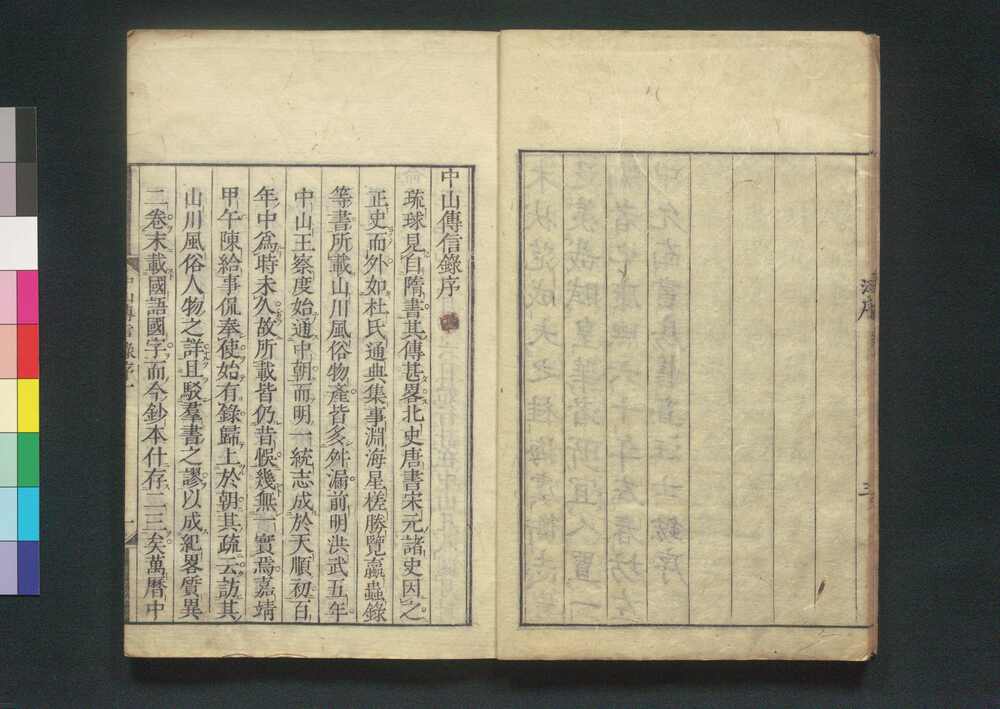 海序
三
中山傳信錄序
琉球見自隋書其傳甚畧北史唐書宋元諸史因之
正史而外如杜氏通典集事淵海星槎勝覽蠃蟲錄
等書所載山川風俗物產皆多舛漏前明洪武五年
中山王察度始通中朝而明一統志成於天順初百
年中爲時未久故所載皆仍昔悞幾無一實焉嘉靖
甲午陳給事侃奉使始有錄歸上於朝其疏云訪其
山川風俗人物之詳且駁羣書之謬以成紀畧質異
二卷末載國語國字而今鈔本什存二三矣萬曆中
中山傳信錄序一